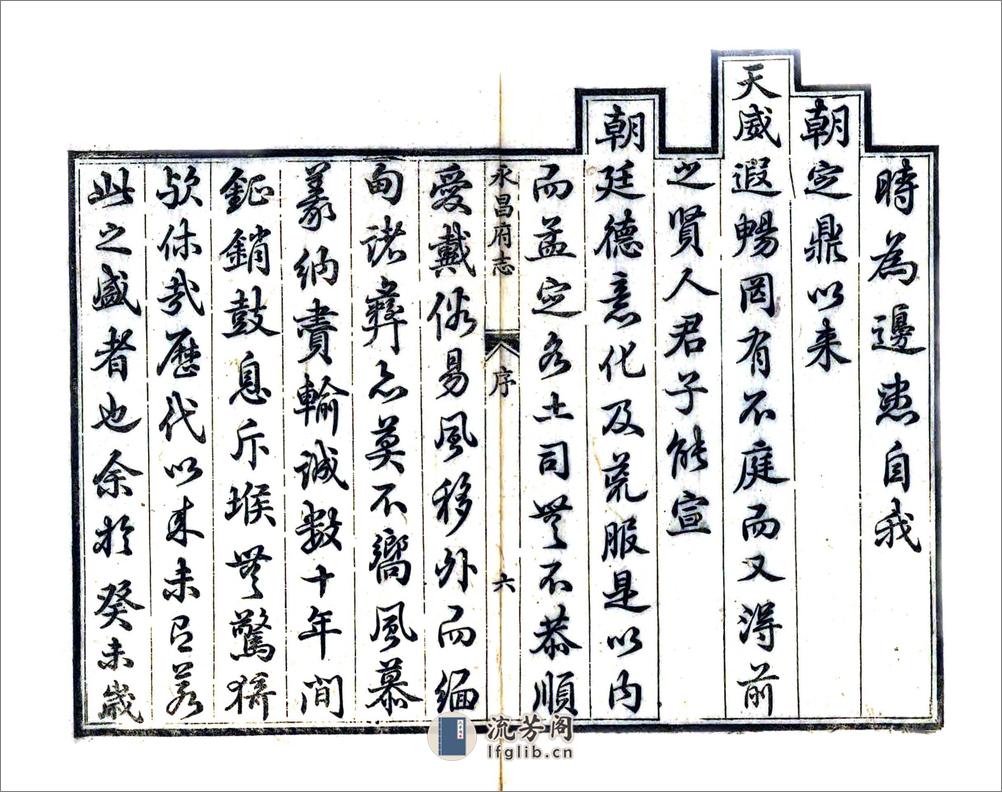 時為邊患自我
朝定鼎以来
天威遐暢罔有不庭而又得前
之賢人君子能宣
朝廷德意化及荒服是以内
而孟定各土司無不恭順
永昌府志 序 六
愛戴俗易風移外而緬
甸諸彝亦莫不嚮風慕
義納賮輸誠数十年間
鉦銷鼓息斥堠無驚猗
欤休哉歷代以来未有若
此之盛者也余於癸未歲
流芳阁
lfglib.cn